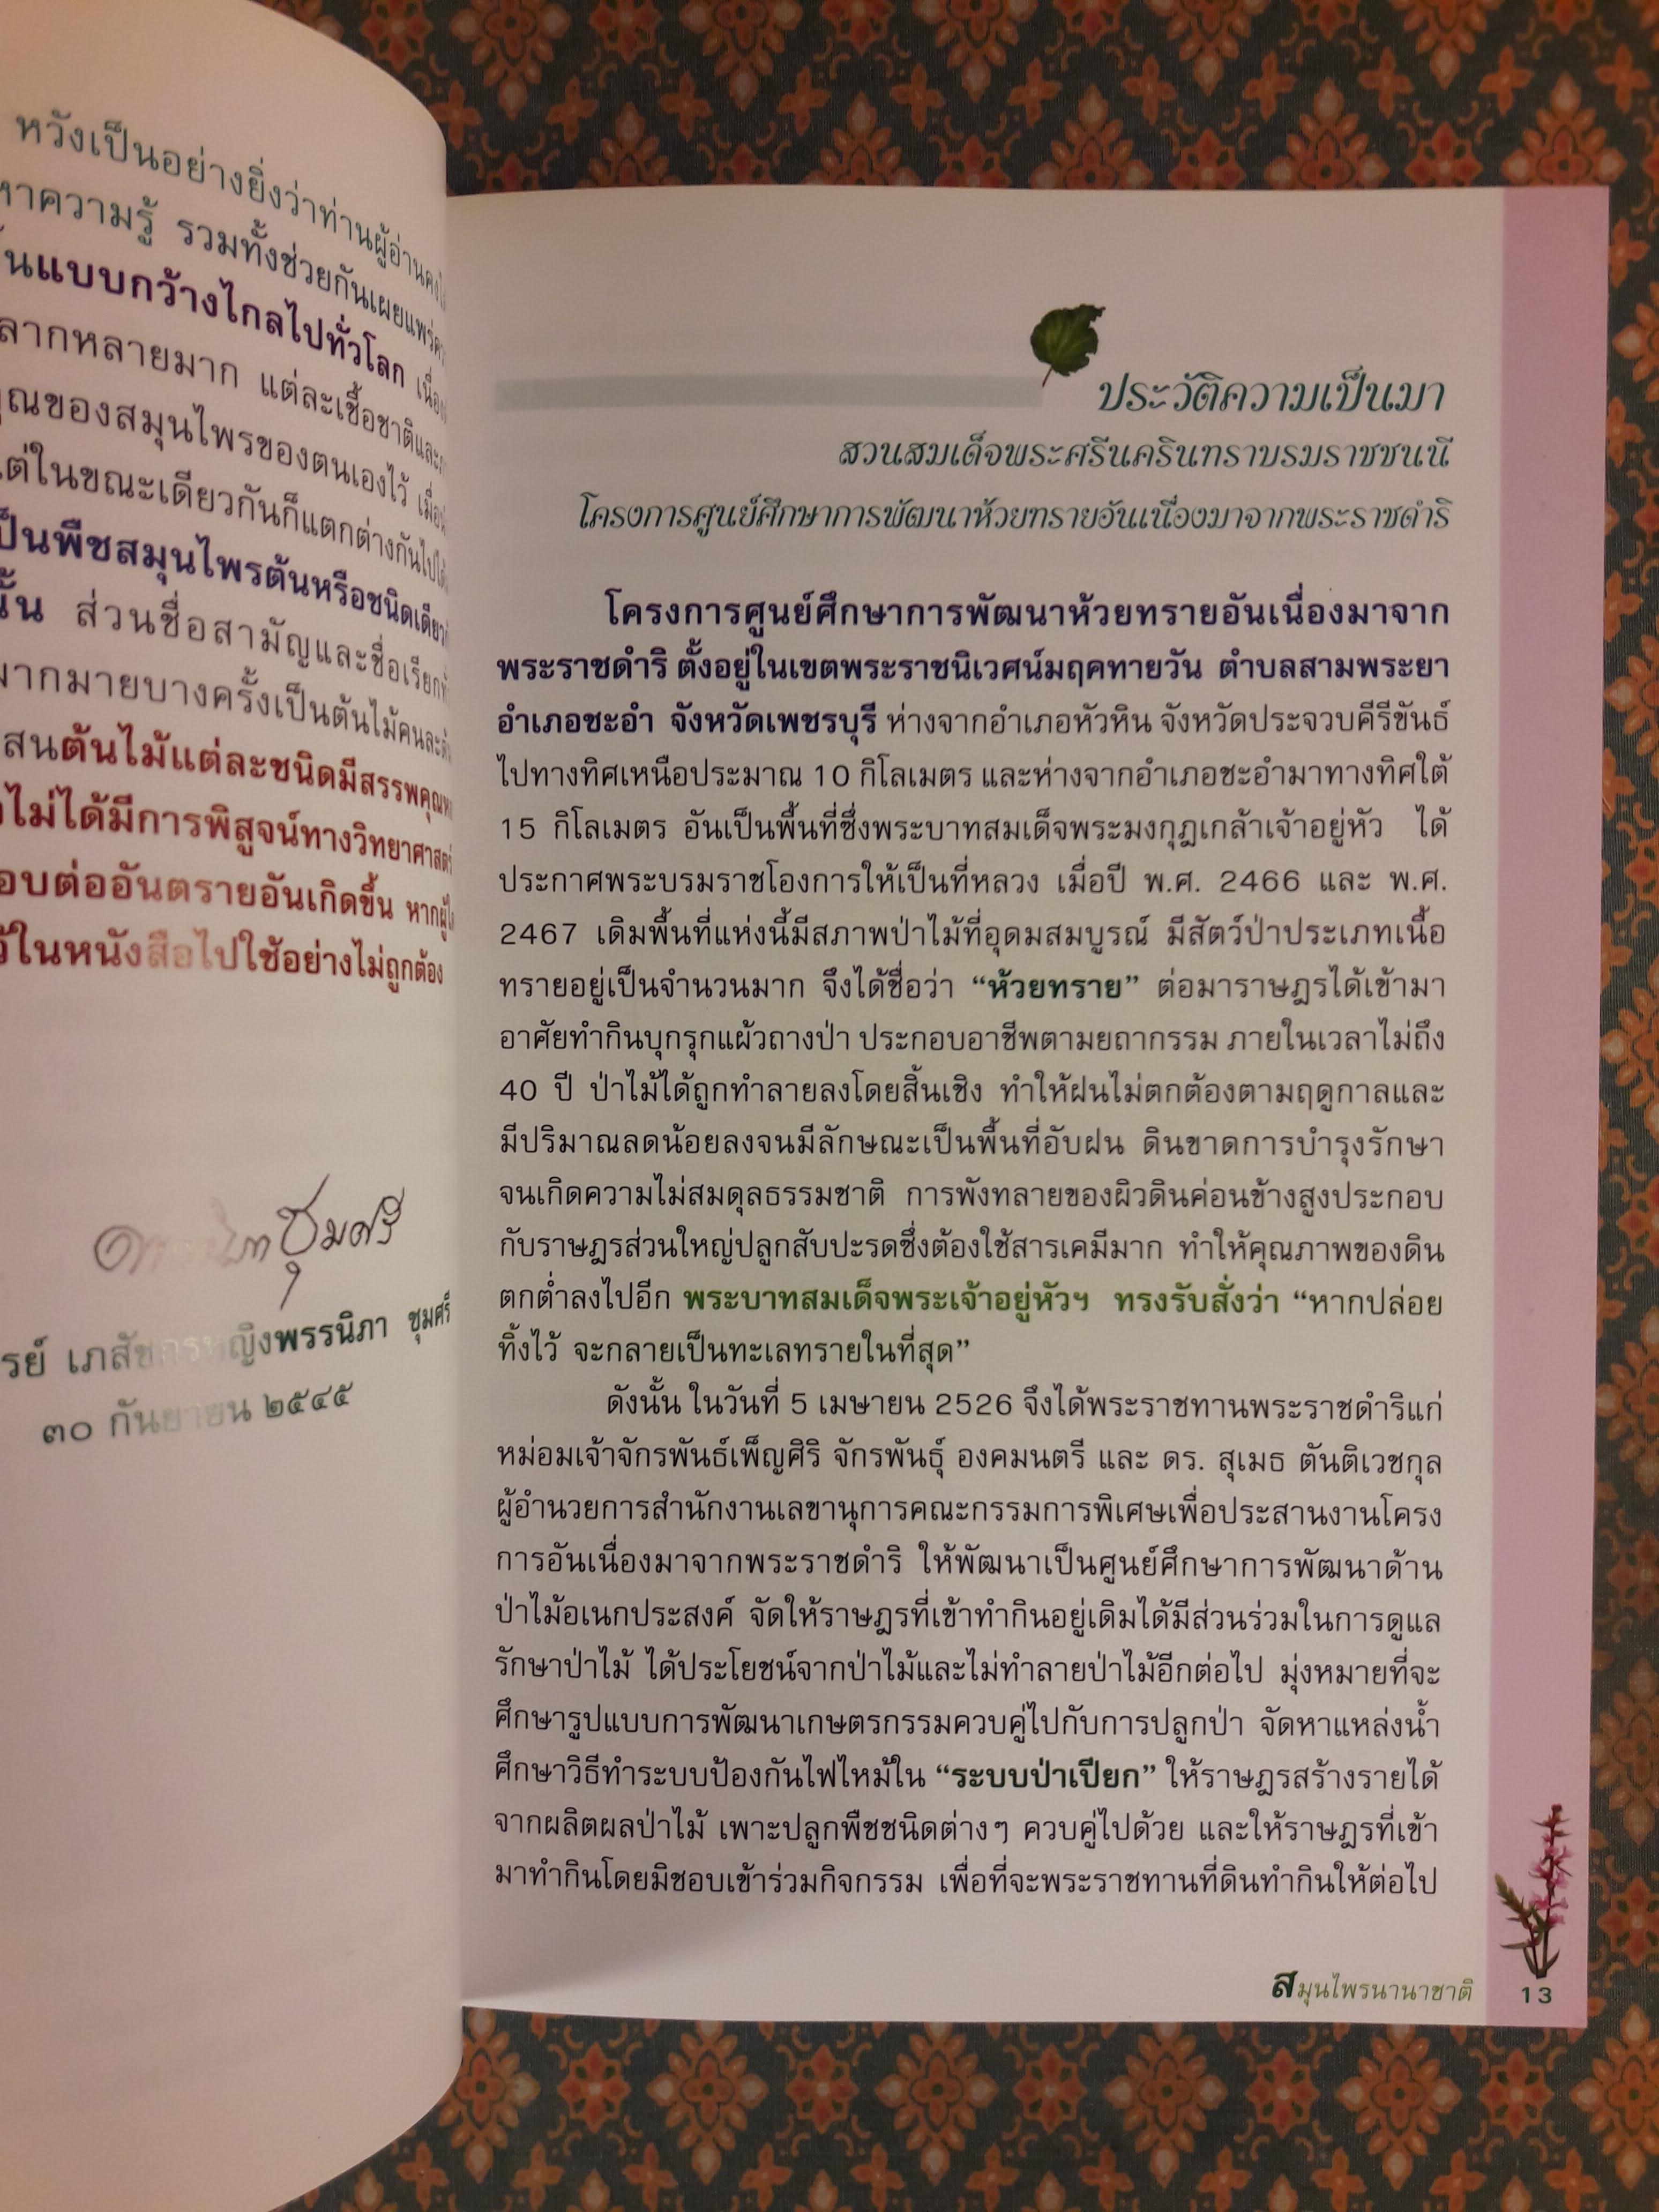 หวังเป็นอย่างยิ่งว่าท่านผู้อ่านคงได้
หาความรู้ รวมทั้งช่วยกันเผยแพร่
แบบกว้างไกลไปทั่วโลก
ลากหลายมาก แต่ละเชื้อชาติและ
คุณของสมุนไพรของตนเองไว้
แต่ในขณะเดียวกันก็แตกต่างกันไป
เป็นพืชสมุนไพรต้นหรือชนิดเดียว
นั้น ส่วนชื่อสามัญและชื่อเรียก
มากมายบางครั้งเป็นต้นไม้คนละต้น
สนต้นไม้แต่ละชนิดมีสรรพคุณ
ไม่ได้มีการพิสูจน์ทางวิทยาศาสตร์
อบต่ออันตรายอันเกิดขึ้น
ในหนังสือไปใช้อย่างไม่ถูกต้อง
เภสัชกรหญิงพรรนิภา ชุมศรี
๓๐ กันยายน ๒๕๔๕
ประวัติความเป็นมา
สวนสมเด็จพระศรีนครินทราบรมราชชนนี
โครงการศูนย์ศึกษาการพัฒนาห้วยทรายอันเนื่องมาจากพระราชดำริ
โครงการศูนย์ศึกษาการพัฒนาห้วยทรายอันเนื่องมาจาก
พระราชดำริ ตั้งอยู่ในเขตพระราชนิเวศน์มฤคทายวัน ตำบลสามพระยา
อำเภอชะอำ จังหวัดเพชรบุรี ห่างจากอำเภอหัวหิน จังหวัดประจวบคีรีขันธ์
ไปทางทิศเหนือประมาณ 10 กิโลเมตร และห่างจากอำเภอชะอำมาทางทิศใต้
15 กิโลเมตร อันเป็นพื้นที่ซึ่งพระบาทสมเด็จพระมงกุฎเกล้าเจ้าอยู่หัว ได้
ประกาศพระบรมราชโองการให้เป็นที่หลวง เมื่อปี พ.ศ. 2466 และ พ.ศ.
2467 เดิมพื้นที่แห่งนี้มีสภาพป่าไม้ที่อุดมสมบูรณ์ มีสัตว์ป่าประเภทเนื้อ
ทรายอยู่เป็นจำนวนมาก จึงได้ชื่อว่า “ห้วยทราย” ต่อมาราษฎรได้เข้ามา
อาศัยทำกินบุกรุกแผ้วถางป่า ประกอบอาชีพตามยถากรรม ภายในเวลาไม่ถึง
40 ปี ป่าไม้ได้ถูกทำลายลงโดยสิ้นเชิง ทำให้ฝนไม่ตกต้องตามฤดูกาลและ
มีปริมาณลดน้อยลงจนมีลักษณะเป็นพื้นที่อับฝน ดินขาดการบำรุงรักษา
จนเกิดความไม่สมดุลธรรมชาติ การพังทลายของผิวดินค่อนข้างสูงประกอบ
กับราษฎรส่วนใหญ่ปลูกสับปะรดซึ่งต้องใช้สารเคมีมาก ทำให้คุณภาพของดิน
ตกต่ำลงไปอีก พระบาทสมเด็จพระเจ้าอยู่หัวฯ ทรงรับสั่งว่า “หากปล่อย
ทิ้งไว้ จะกลายเป็นทะเลทรายในที่สุด”
ดังนั้น ในวันที่ 5 เมษายน 2526 จึงได้พระราชทานพระราชดำริแก่
หม่อมเจ้าจักรพันธ์เพ็ญศิริ จักรพันธุ์ องคมนตรี และ ดร. สุเมธ ตันติเวชกุล
ผู้อำนวยการสำนักงานเลขานุการคณะกรรมการพิเศษเพื่อประสานงานโครง
การอันเนื่องมาจากพระราชดำริ ให้พัฒนาเป็นศูนย์ศึกษาการพัฒนาด้าน
ป่าไม้อเนกประสงค์ จัดให้ราษฎรที่เข้าทำกินอยู่เดิมได้มีส่วนร่วมในการดูแล
รักษาป่าไม้ ได้ประโยชน์จากป่าไม้และไม่ทำลายป่าไม้อีกต่อไป มุ่งหมายที่จะ
ศึกษารูปแบบการพัฒนาเกษตรกรรมควบคู่ไปกับการปลูกป่า จัดหาแหล่งน้ำ
ศึกษาวิธีทำระบบป้องกันไฟไหม้ใน “ระบบป่าเปียก” ให้ราษฎรสร้างรายได้
จากผลิตผลป่าไม้ เพาะปลูกพืชชนิดต่างๆ ควบคู่ไปด้วย และให้ราษฎรที่เข้า
มาทำกินโดยมิชอบเข้าร่วมกิจกรรม เพื่อที่จะพระราชทานที่ดินทำกินให้ต่อไป
สมุนไพรนานาชาติ 13